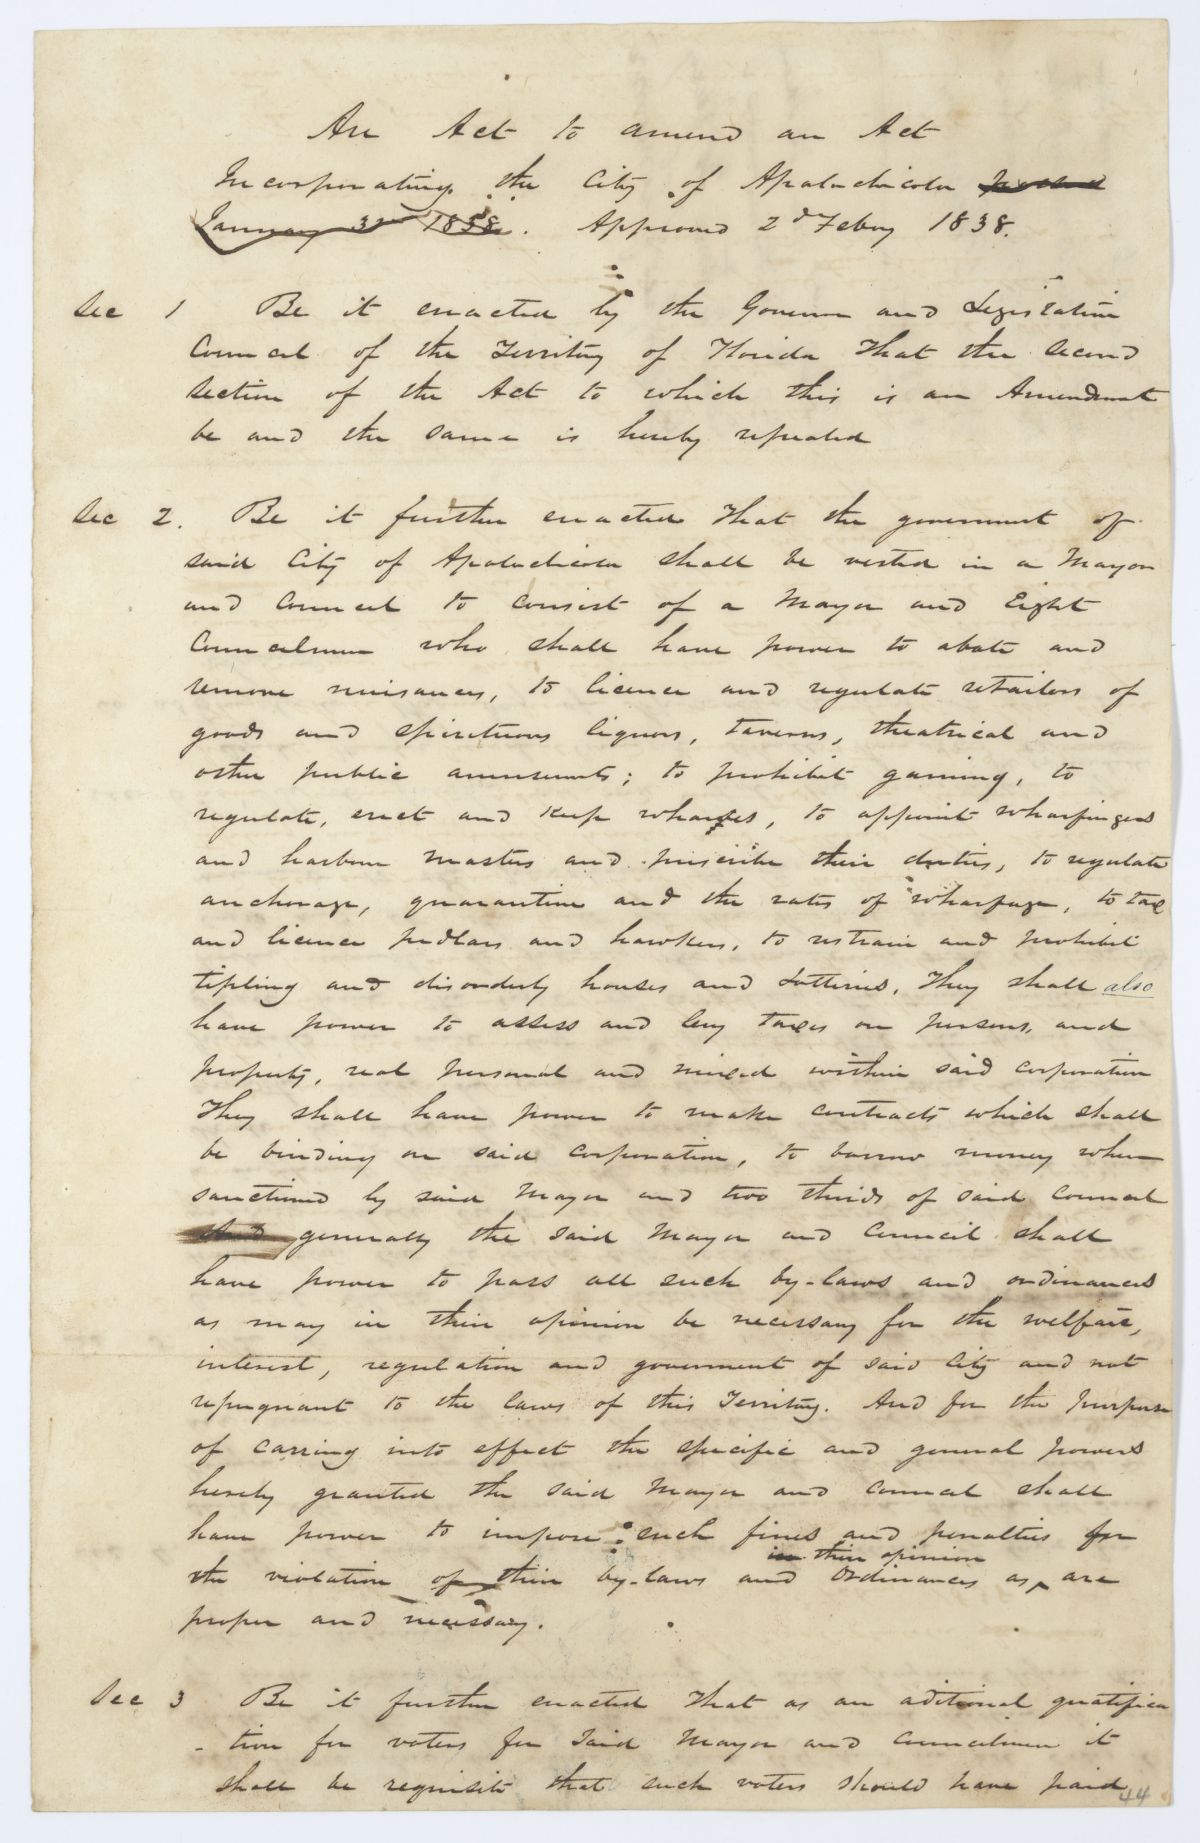 An Act to amend an Act
Incorporating the City of Apalachicola passed
January 31st 1838. Approved 2d Febuy 1838.
Sec 1 Be it enacted by the Governor and Legislative
Council of the Territory of Florida That the second
section of the Act to which this is an Amendment
be and the same is hereby repealed
Sec 2. Be it further enacted That the government of
said City of Apalachicola shall be vested in a Mayor
and Council to consist of a Mayor and Eight
Councilmen who shall have power to abate and
remove nuisances, to licence and regulate retailers of
goods and spirituous liquors, taverns, theatrical and
other public amusements; to prohibit gaming, to
regulate, erect and keep wharfes, to appoint wharfingers
and harbour masters and prescribe their duties, to regulate
anchorage, quarantine and the rates of wharfage, to tax
and licence pedlars and hawkers, to restrain and prohibit
tipling and disorderly houses and Lotteries, They shall also
have power to assess and levy taxes on persons, and
property, real personal and mixed within said corporation
They shall have power to make contracts which shall
be binding on said corporation, to borrow money when
sanctioned by said Mayor and two thirds of said Council
And generally the said Mayor and Council shall
have power to pass all such by-laws and ordinances
as may in their opinion be necessary for the welfare,
interest, regulation and government of said City and not
repugnant to the laws of this Territory. And for the purpose
of carring into effect the specific and general powers
hereby granted the said Mayor and Council shall
have power to impose such fines and penalties for
in their opinion
the violation of their by-laws and Ordinances as are
proper and necessary.
Sec 3 Be it further enacted That as an aditional qualifica
- tion for voters for Said Mayor and Councilmen it
shall be requisite that such voters should have paid
44